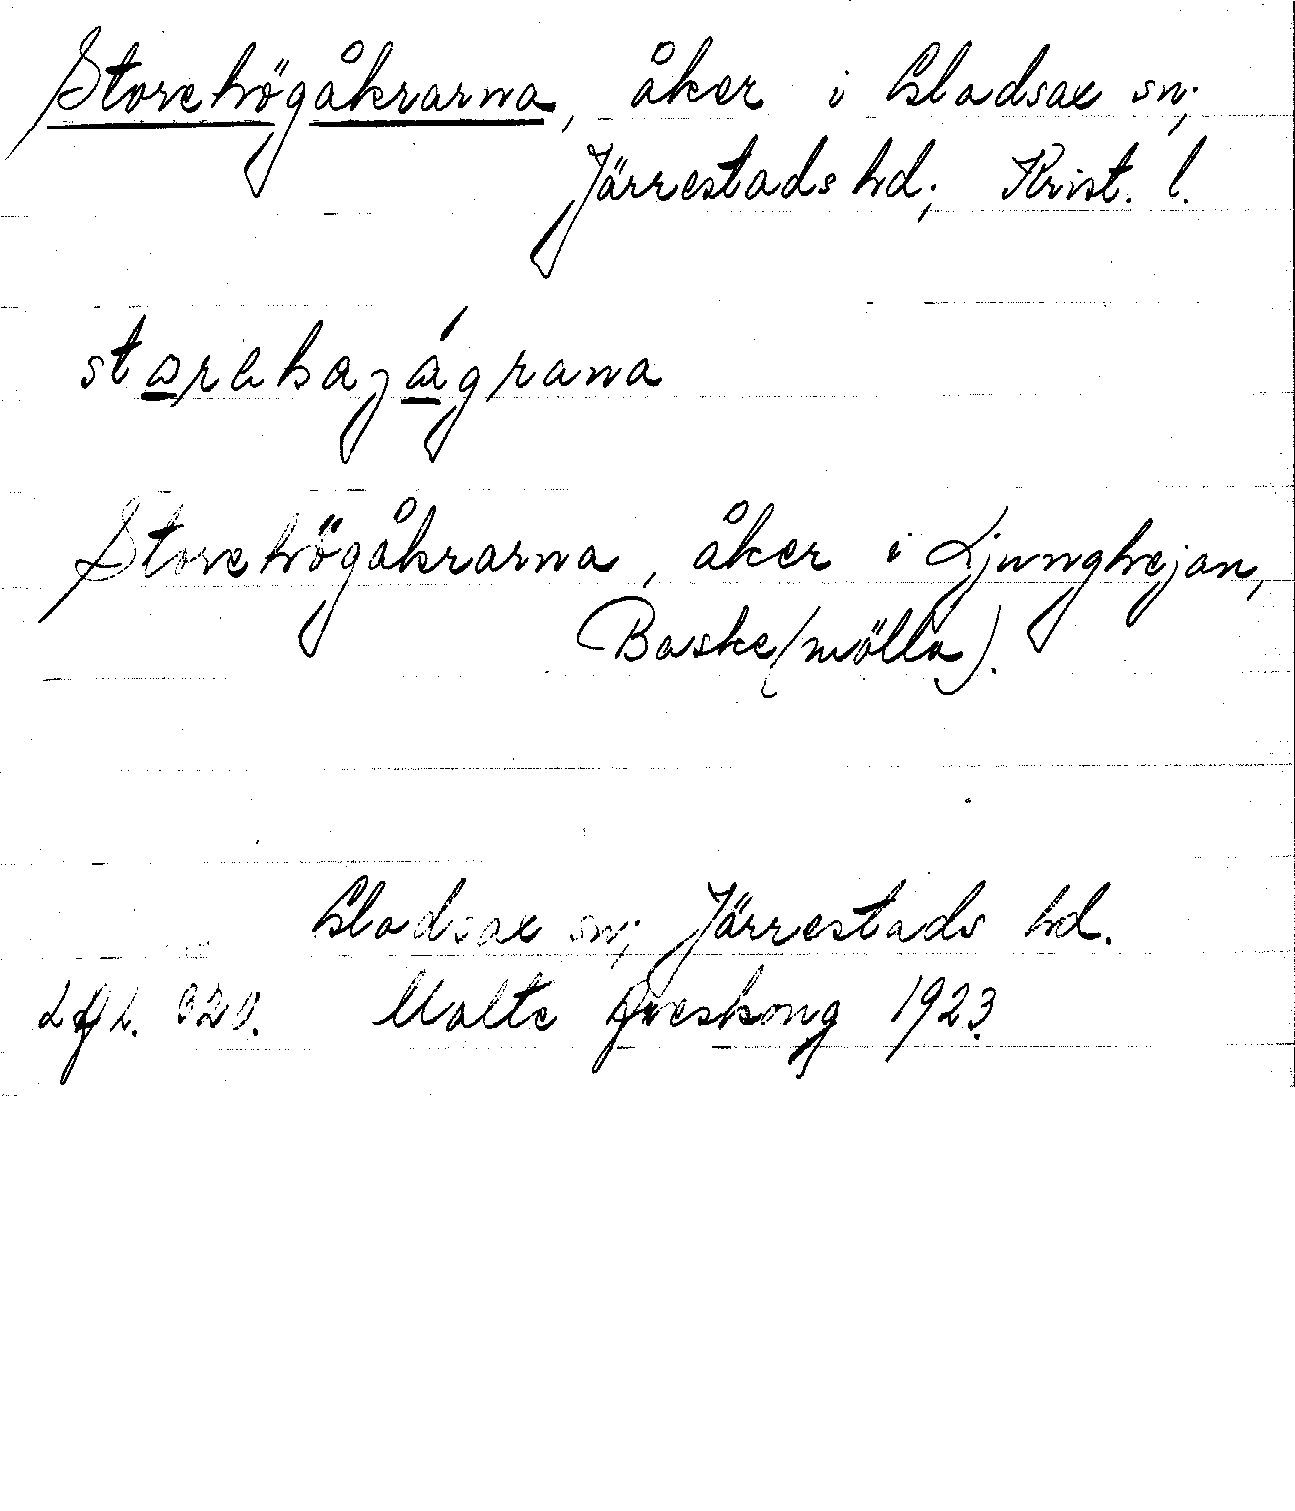 Storehögåkrarna, åker i Gladsax sn;
Järrestads hd; Krist. l.
Storehögåkrarna, åker i Ljunghejan,
Baske(mölla).
Gladsax sn; Järrestads hd.
320. Malte 1923.